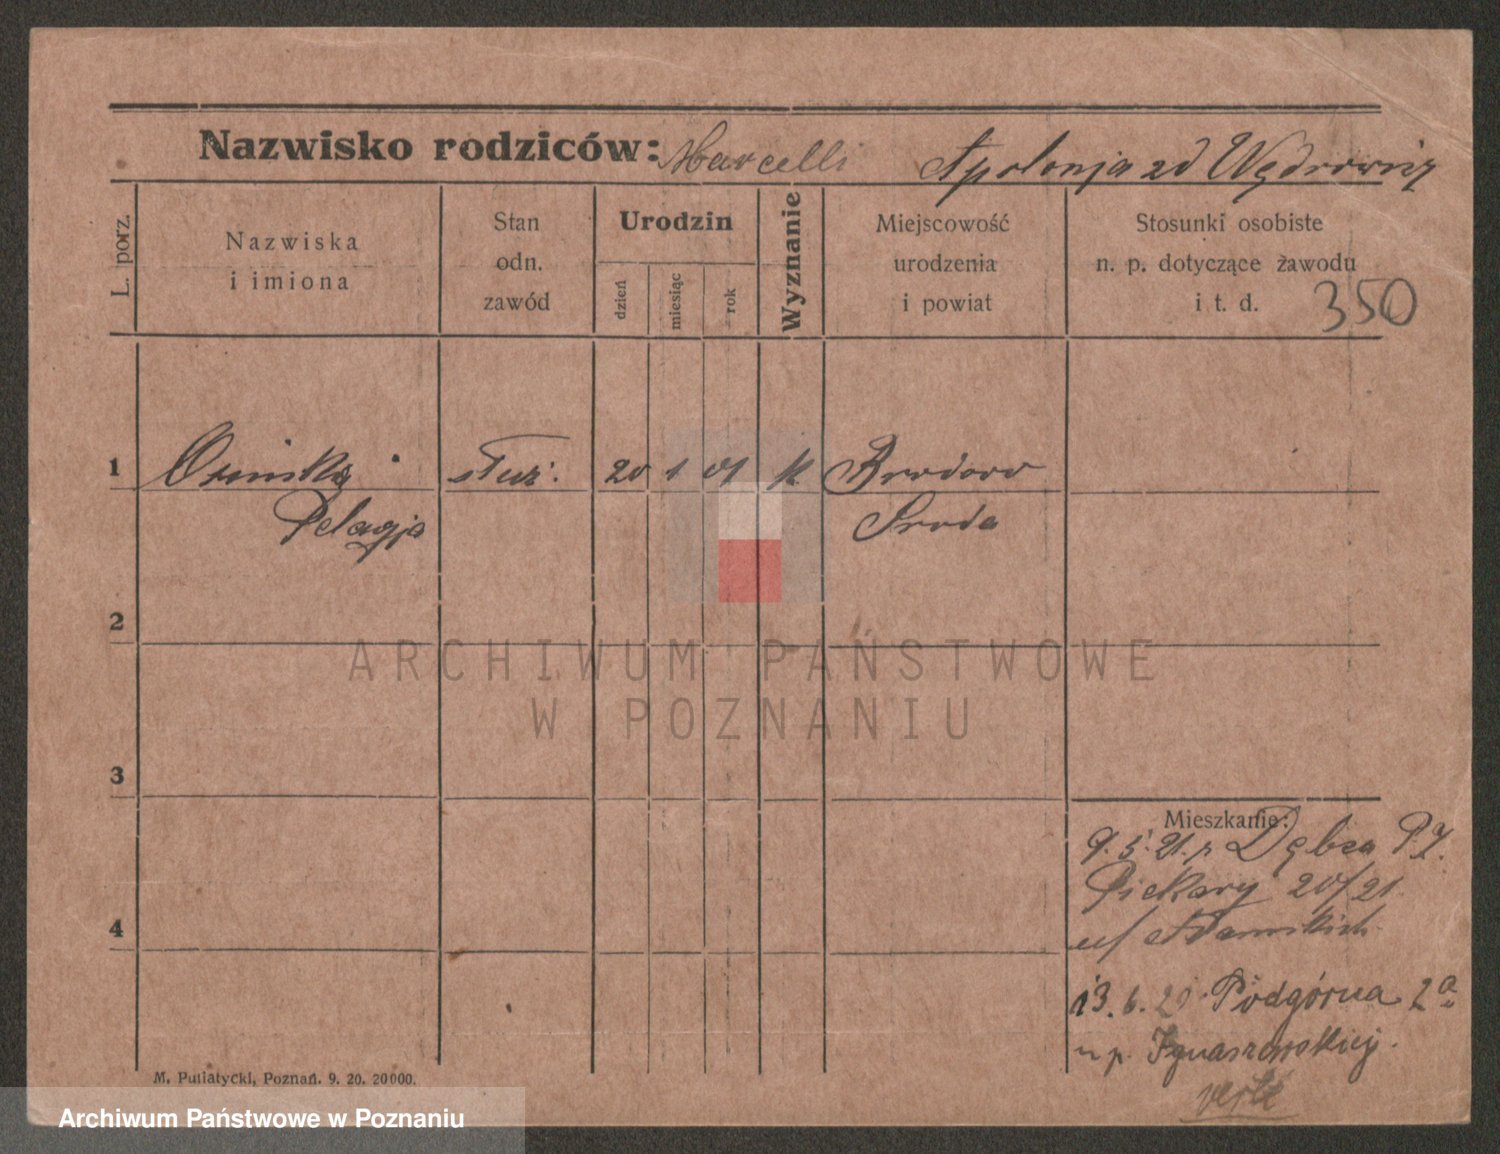 Nazwisko rodziców: Marcelli Apolonja zd Wędrowicz
L. porz.
Nazwiska
i imiona
Stan
odn.
zawód
Urodzin
dzień
miesiąc
rok
Wyznanie
Miejscowość
urodzenia
i powiat
Stosunki osobiste
n. p. dotyczące zawodu
i t. d.
350
1 Osinska służ. 20 1 01 k. Brodowo
Pelagja Sroda
2
ARCHIWUM PAŃSTWOWE
W POZNANIU
3
Mieszkanie:
9.5.21. z Dębca
Piekary 20/21
4
13.6.21 Podgórna 2a
u p. Ignaszewskiej.
verte
M. Putiatycki, Poznań. 9. 20. 20000.
Archiwum Państwowe w Poznaniu